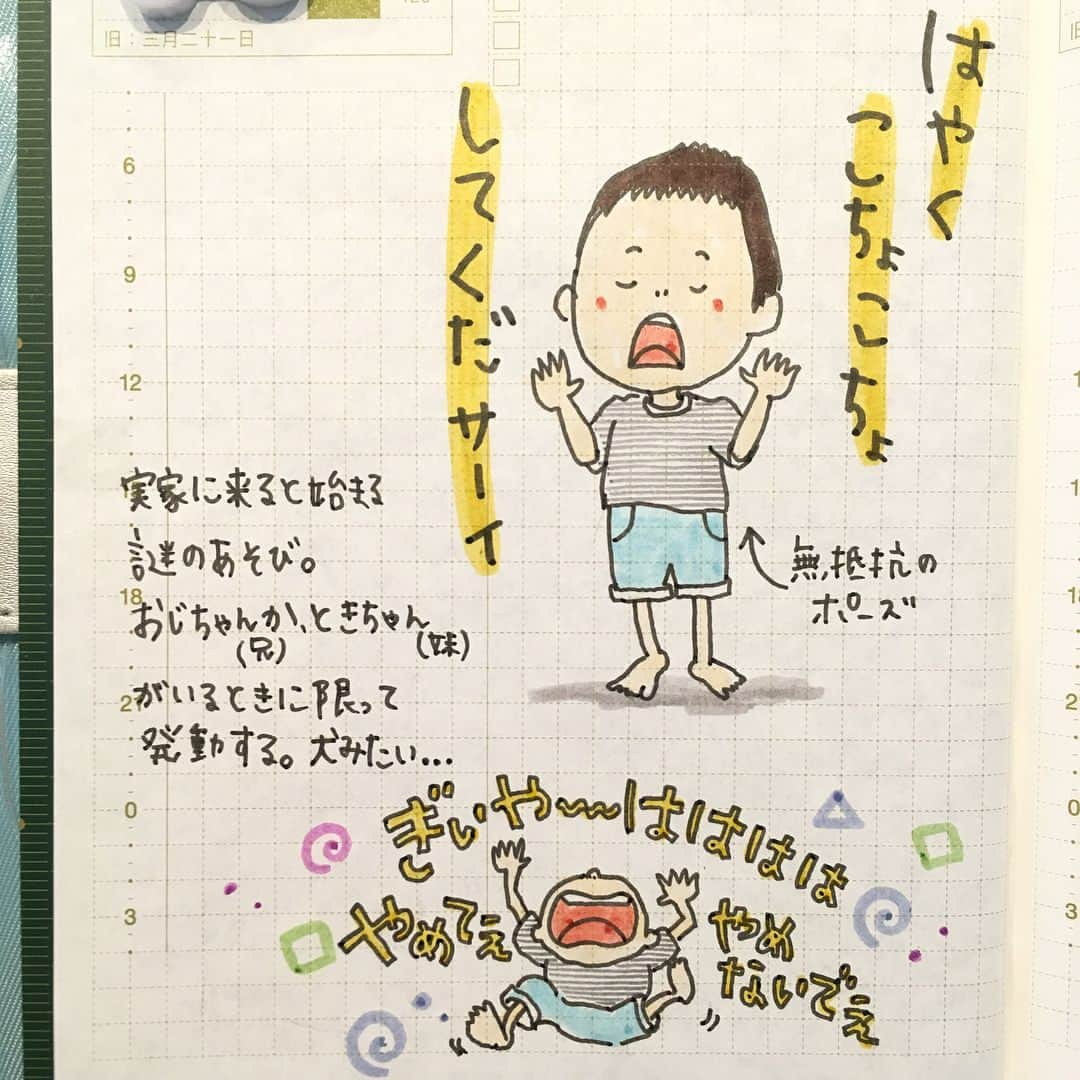 旧:三月二十一日
はやく
こちょこちょ
してくだサーイ
無抵抗の
ポーズ
実家に来ると始まる
謎のあそび。
おじちゃんか、ときちゃん
(兄)
(妹)
がいるときに限って
発動する。犬みたい...
ぎぃや〜〜はははは
やめてぇ
やめ
ないでぇ
6
9
12
18
2
0
3